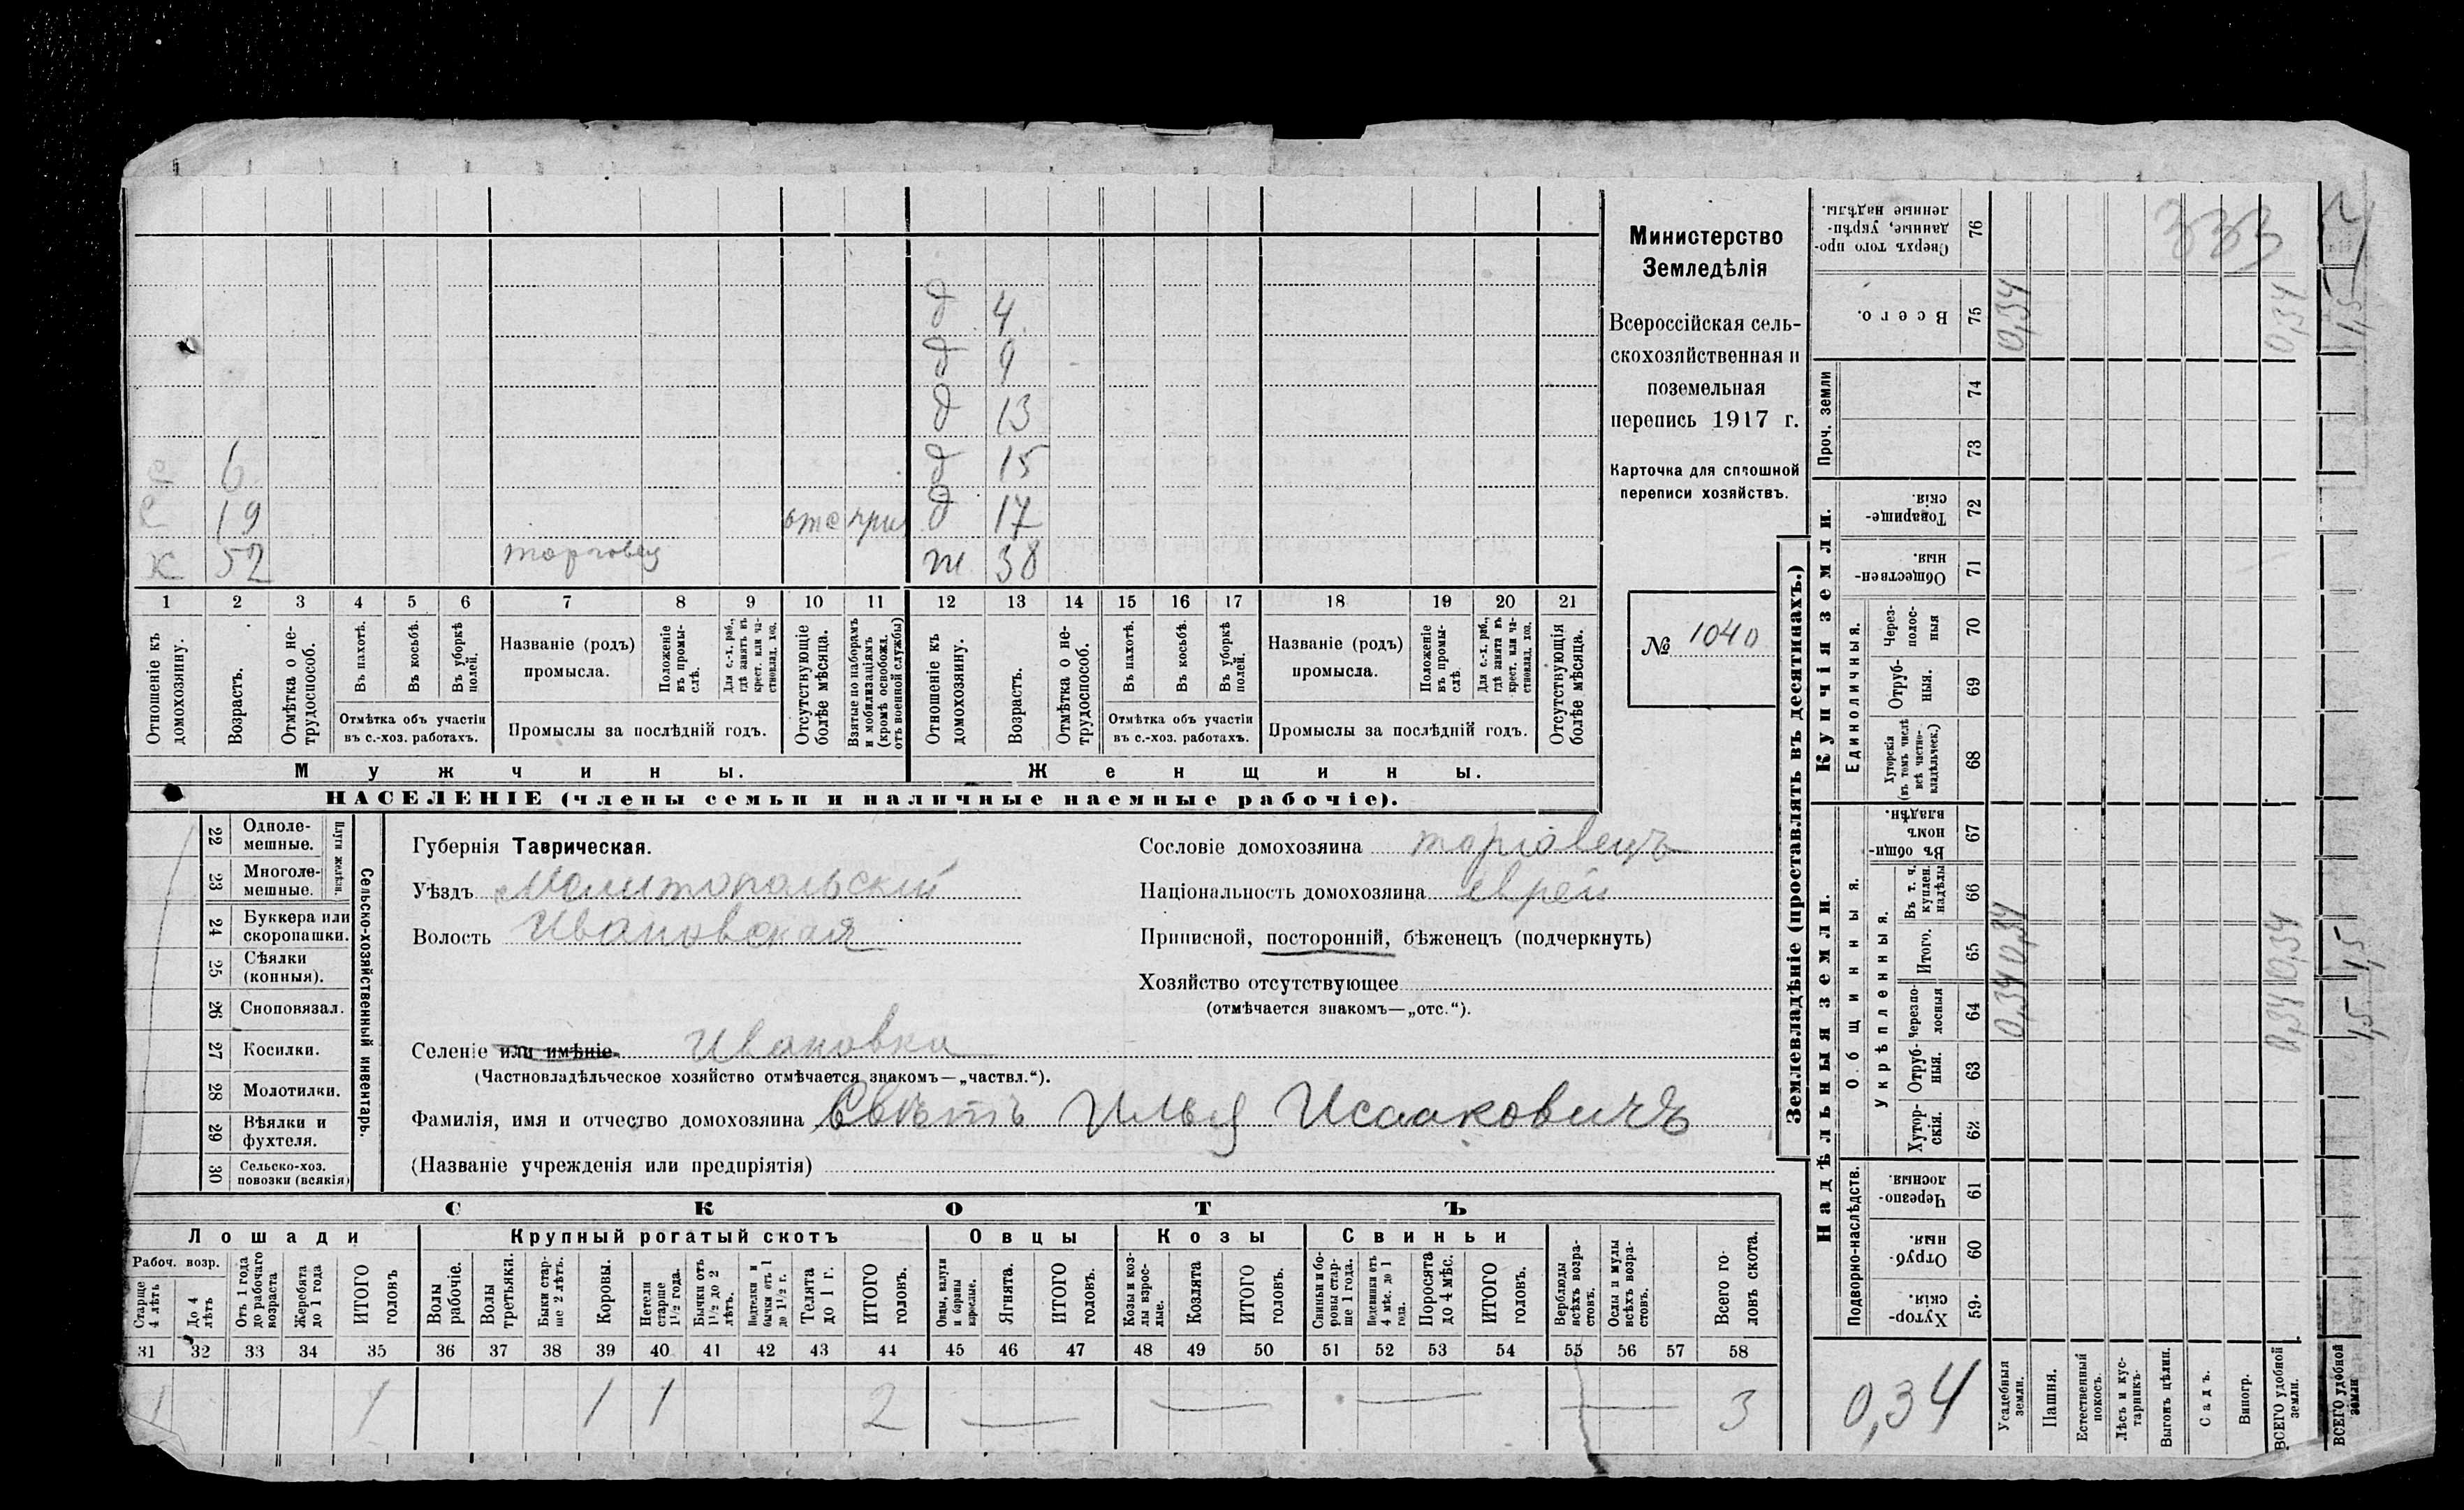 д 4
д 9
д 13
с 6 д 15
с 19 отс при д 17
х 52 торговец ж 38
1 2 3 4 5 6 7 8 9 10 11 12 13 14 15 16 17 18 19 20 21
Отношеніе къ домохозяину.
Возрастъ.
Отмѣтка о не-трудоспособ.
Въ пахотѣ.
Въ косьбѣ.
Въ уборкѣ полей.
Отмѣтка объ участіи
въ с.-хоз. работахъ.
Названіе (родъ)
промысла.
Положеніе въ промы-слѣ.
Для с.-х. раб., гдѣ занятъ въ крест. или ча-стновлад. хоз.
Промыслы за послѣдній годъ.
Отсутствующіе болѣе мѣсяца.
Взятые по наборамъ и мобилизаціямъ (кромѣ освобожд. отъ военной службы)
Отношеніе къ домохозяину.
Возрастъ.
Отмѣтка о не-трудоспособ.
Въ пахотѣ.
Въ косьбѣ.
Въ уборкѣ полей.
Отмѣтка объ участіи
въ с.-хоз. работахъ.
Названіе (родъ)
промысла.
Положеніе въ промы-слѣ
Для с.-х. раб., гдѣ занята въ крест. или ча-стновлад. хоз.
Промыслы за послѣдній годъ.
Отсутствующія болѣе мѣсяца.
Мужчины.
Женщины.
НАСЕЛЕНІЕ (члены семьи и наличные наемные рабочіе).
Министерство
Земледѣлія
Всероссійская сель-
скохозяйственная и
поземельная
перепись 1917 г.
Карточка для сплошной
переписи хозяйствъ.
№ 1040
22 Одноле-мешные.
23 Многоле-мешные.
Плуги желѣзн.
24 Буккера или скоропашки.
25 Сѣялки (конныя).
26 Сноповязал.
27 Косилки.
28 Молотилки.
29 Вѣялки и фухтеля.
30 Сельско-хоз. повозки (всякія)
Сельско-хозяйственный инвентарь.
Губернія Таврическая.
Уѣздъ Мелитопольский
Волость Ивановская
Сословіе домохозяина торговецъ
Національность домохозяина еврей
Приписной, посторонній, бѣженецъ (подчеркнуть)
Хозяйство отсутствующее
(отмѣчается знакомъ—„отс.“).
Селеніе или имѣніе Ивановка
(Частновладѣльческое хозяйство отмѣчается знакомъ—„частвл.“).
Фамилія, имя и отчество домохозяина Свѣтъ Илья Исааковичъ
(Названіе учрежденія или предпріятія)
СКОТЪ
Лошади
Крупный рогатый скотъ
Овцы
Козы
Свиньи
Рабоч. возр.
Старше 4 лѣтъ
До 4 лѣтъ
Отъ 1 года до рабочаго возраста
Жеребята до 1 года
ИТОГО головъ
Волы рабочіе.
Волы третьяки.
Быки стар-ше 2 лѣтъ.
Коровы.
Нетели старше 1½ года.
Бычки отъ 1½ до 2 лѣтъ.
Подтелки и бычки отъ 1 до 1½ г.
Телята до 1 г.
ИТОГО головъ.
Овцы, валухи и бараны взрослые.
Ягнята.
ИТОГО головъ.
Козы и коз-лы взрос-лые.
Козлята
ИТОГО головъ.
Свиньи и бо-ровы стар-ше 1 года.
Подсвинки отъ 4 мѣс. до 1 года.
Поросята до 4 мѣс.
ИТОГО головъ.
Верблюды всѣхъ возра-стовъ.
Ослы и мулы всѣхъ возра-стовъ.
Всего го-ловъ скота.
31 32 33 34 35 36 37 38 39 40 41 42 43 44 45 46 47 48 49 50 51 52 53 54 55 56 57 58
1 1 1 1 2 — — — — 3
Землевладѣніе (проставлять въ десятинахъ.)
Надѣльныя земли.
Купчія земли.
Проч. земли
Подворно-наслѣдств.
Общинныя.
Укрѣпленныя.
Единоличныя.
Сверхъ того про-данные, укрѣп-ленные надѣлы. 76
Всего. 75 0,34 0,34 1,5
74
73
Товарище-скія. 72
Обществен-ныя 71
Через-полос-ныя 70
Отруб-ныя. 69
Хуторскія (въ томъ числѣ всѣ частно-владѣльческ.) 68
Въ общин-номъ владѣн. 67
Въ т. ч. куплен. надѣлы 66
Итого. 65 0,34 0,34 1,5
Черезпо-лосныя 64 0,34 0,34 1,5
Отруб-ныя. 63
Хутор-скія. 62
Черезпо-лосныя. 61
Отруб-ныя. 60
Хутор-скія. 59.
333
0,34
Усадебныя земли.
Пашня.
Естественный покосъ.
Лѣсъ и кус-тарникъ.
Выгонъ цѣлин.
Садъ.
Виногр.
ВСЕГО удобной земли.
ВСЕГО удобной земли